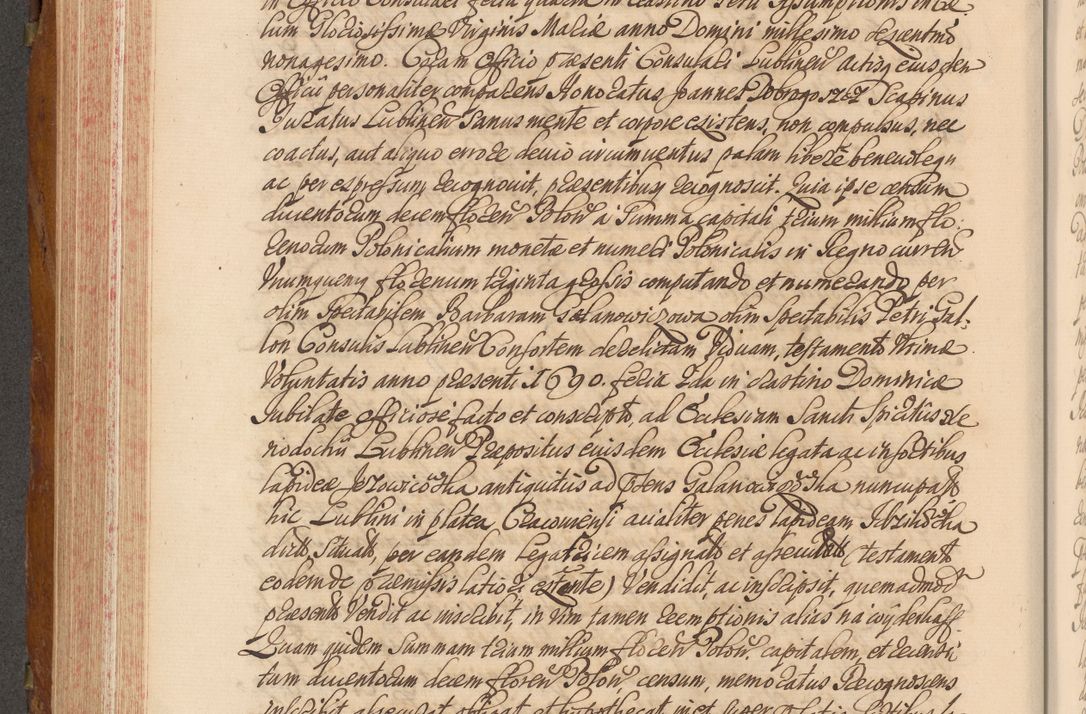 in Officio Consulari feria quarta in crastino festi Assumptionis in Cæ
lum Gloriosissimæ Virginis Mariæ anno Domini millesimo sexcentmo
nonagesimo. Coram Officio præsenti Consulari Lublinen Actisq eiusdem
Officii personaliter comparens Honoratus Joannes Dobrogoszcz Scabinus
Juratus Lublinen Sanus mente et corpore existens, non compulsus, nec
coactus, aut aliquo errore devio circumventus palam libere benevoleq
ac per expressum recognovit, præsentibusq recognoscit. Quia ipse censum
ducentorum decem floren Polon a Summa capitali trium millium flo:
renorum Polonicalium monetæ et numeri Polonicalis in Regno curren
Unumquemq florenum triginta grossis computando et numerando per
olim Spectabilem Barbaram olim Spectabilis Petri Gal-
lon Consulis Lublinen Consortem derelictam Viduam, testamento Ultimæ
Voluntatis anno præsenti 1690. feria 2da in crastino Dominicæ
Jubilate officiose facto et conscripto, ad Ecclesiam Sancti Spiritus Xe
nodochii Lublinen Præpositus eiusdem Ecclesiæ legata ac in sortibus
lapideæ antiquitus ad nuncupato
hic Lublini in platea Cracoviensi acialiter penes lapideam
dicto, situato, per eandem Legatricem assignato et (testamento
eodem de præmissis latiori extante) Vendidit, ac inscripsit, quemadmod
præsento Vendit ac inscribit, in vim tamen reemptionis alias na wyderkaff
Quam quidem Summam trium millium floren Polon. capitalem, et
tum ducentorum decem floren Polon censum, memoratus Recognoscens
inscribit assecurat obligat et hypothecat in et super